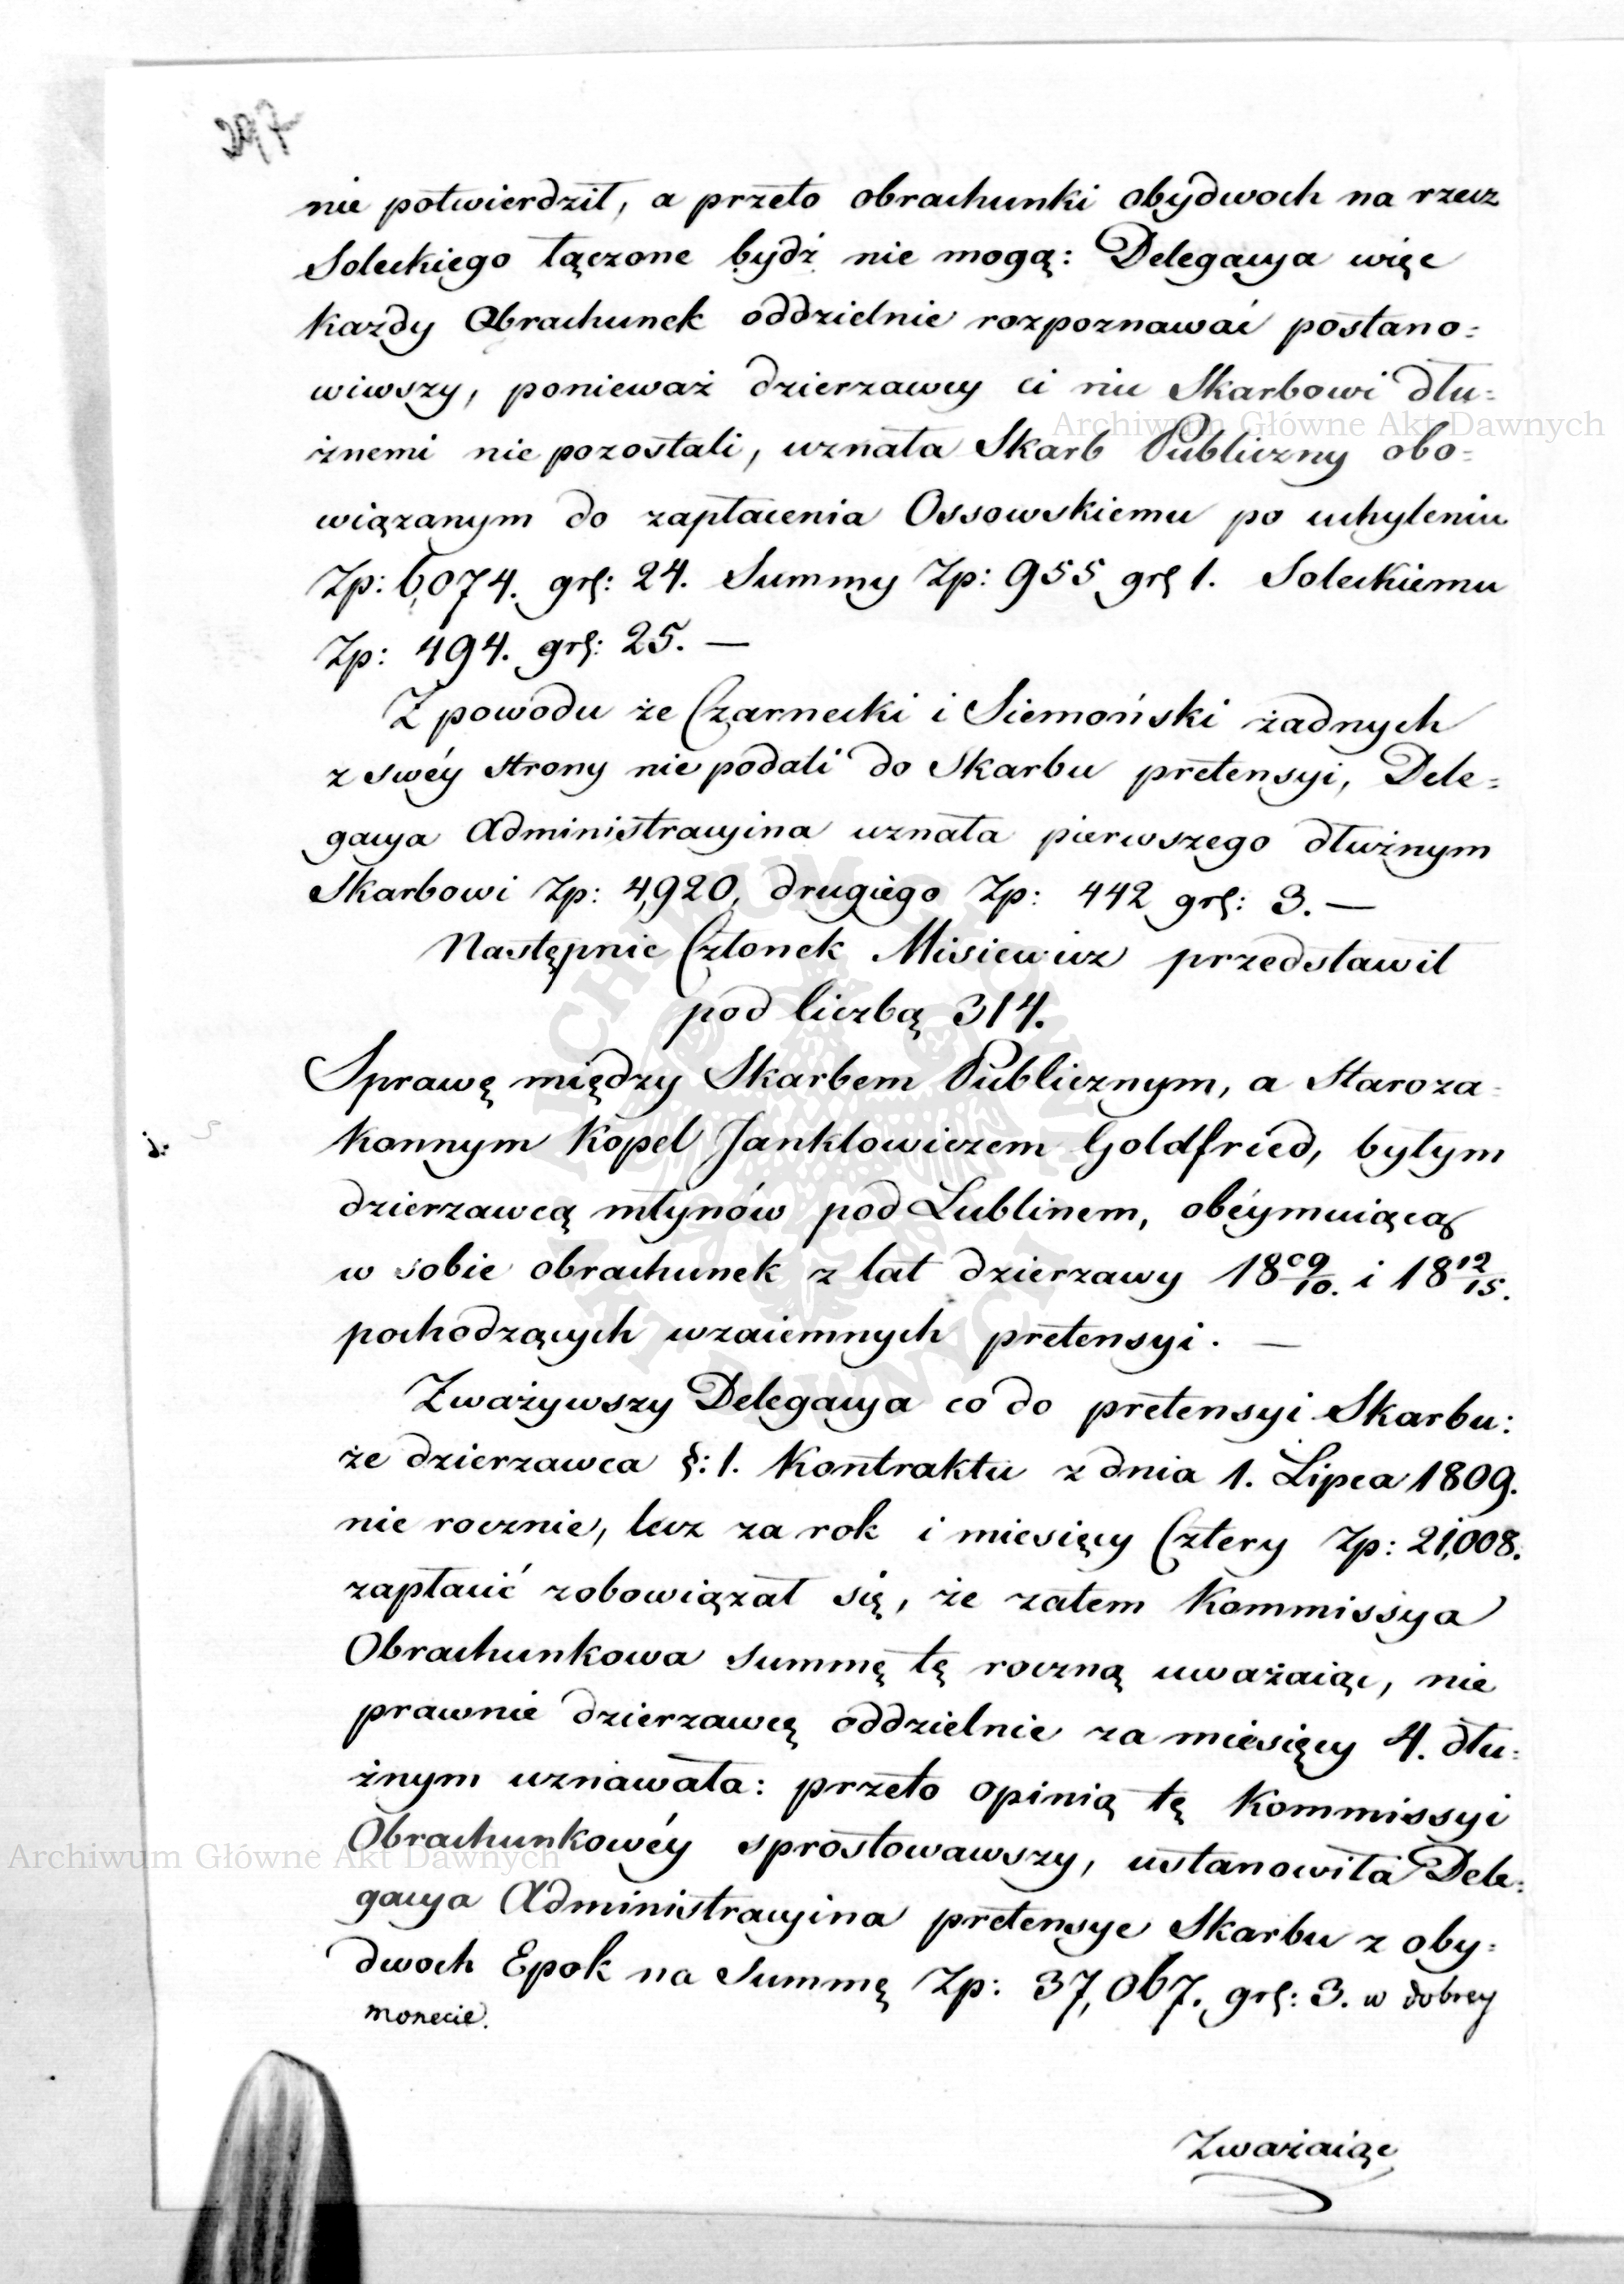 297
nie potwierdził, a przeto obrachunki obydwoch na rzecz
Soleckiego łączone bydź nie mogą: Delegacya więc
każdy Obrachunek oddzielnie rozpoznawać postano=
wiwszy, ponieważ dzierzawcy ci nic Skarbowi dłu=
żnemi nie pozostali, uznała Skarb Publiczny obo=
wiązanym do zapłacenia Ossowskiemu po uchyleniu
Zp: 6,074. grſ: 24. Summy Zp: 955 grſ 1. Soleckiemu
Zp: 494. grſ: 25. —
Z powodu że Czarnecki i Siemoński żadnych
z swéy strony nie podali do Skarbu pretensyi, Dele=
gacya Administracyina uznała pierwszego dłużnym
Skarbowi Zp: 4,920, drugiego Zp: 442 grſ: 3. —
Następnie Członek Misiewicz przedstawił
pod liczbą 314.
Sprawę między Skarbem Publicznym, a Staroza=
konnym Kopel Janklowiczem Goldfried, byłym
dzierzawcą młynów pod Lublinem, obéymuiącą
w sobie obrachunek z lat dzierzawy 18 09/10. i 18 12/15.
pochodzących wzaiemnych pretensyi. —
Zważywszy Delegacya co do pretensyi Skarbu:
że dzierzawca §: 1. Kontraktu z dnia 1. Lipca 1809.
nie rocznie, lecz za rok i miesięcy Cztery Zp: 21,008.
zapłacić zobowiązał się, że zatem Kommissya
Obrachunkowa summę tę roczną uważaiąc, nie
prawnie dzierzawcę oddzielnie za miesięcy 4. dłu=
żnym uznawała: przeto opinią tę Kommissyi
Obrachunkowéy sprostowawszy, ustanowiła Dele=
gacya Administracyina pretensye Skarbu z oby=
dwoch Epok na Summę Zp: 37,067. grſ: 3. w dobrey
monecie.
Zważaiąc
Archiwum Główne Akt Dawnych
Archiwum Główne Akt Dawnych